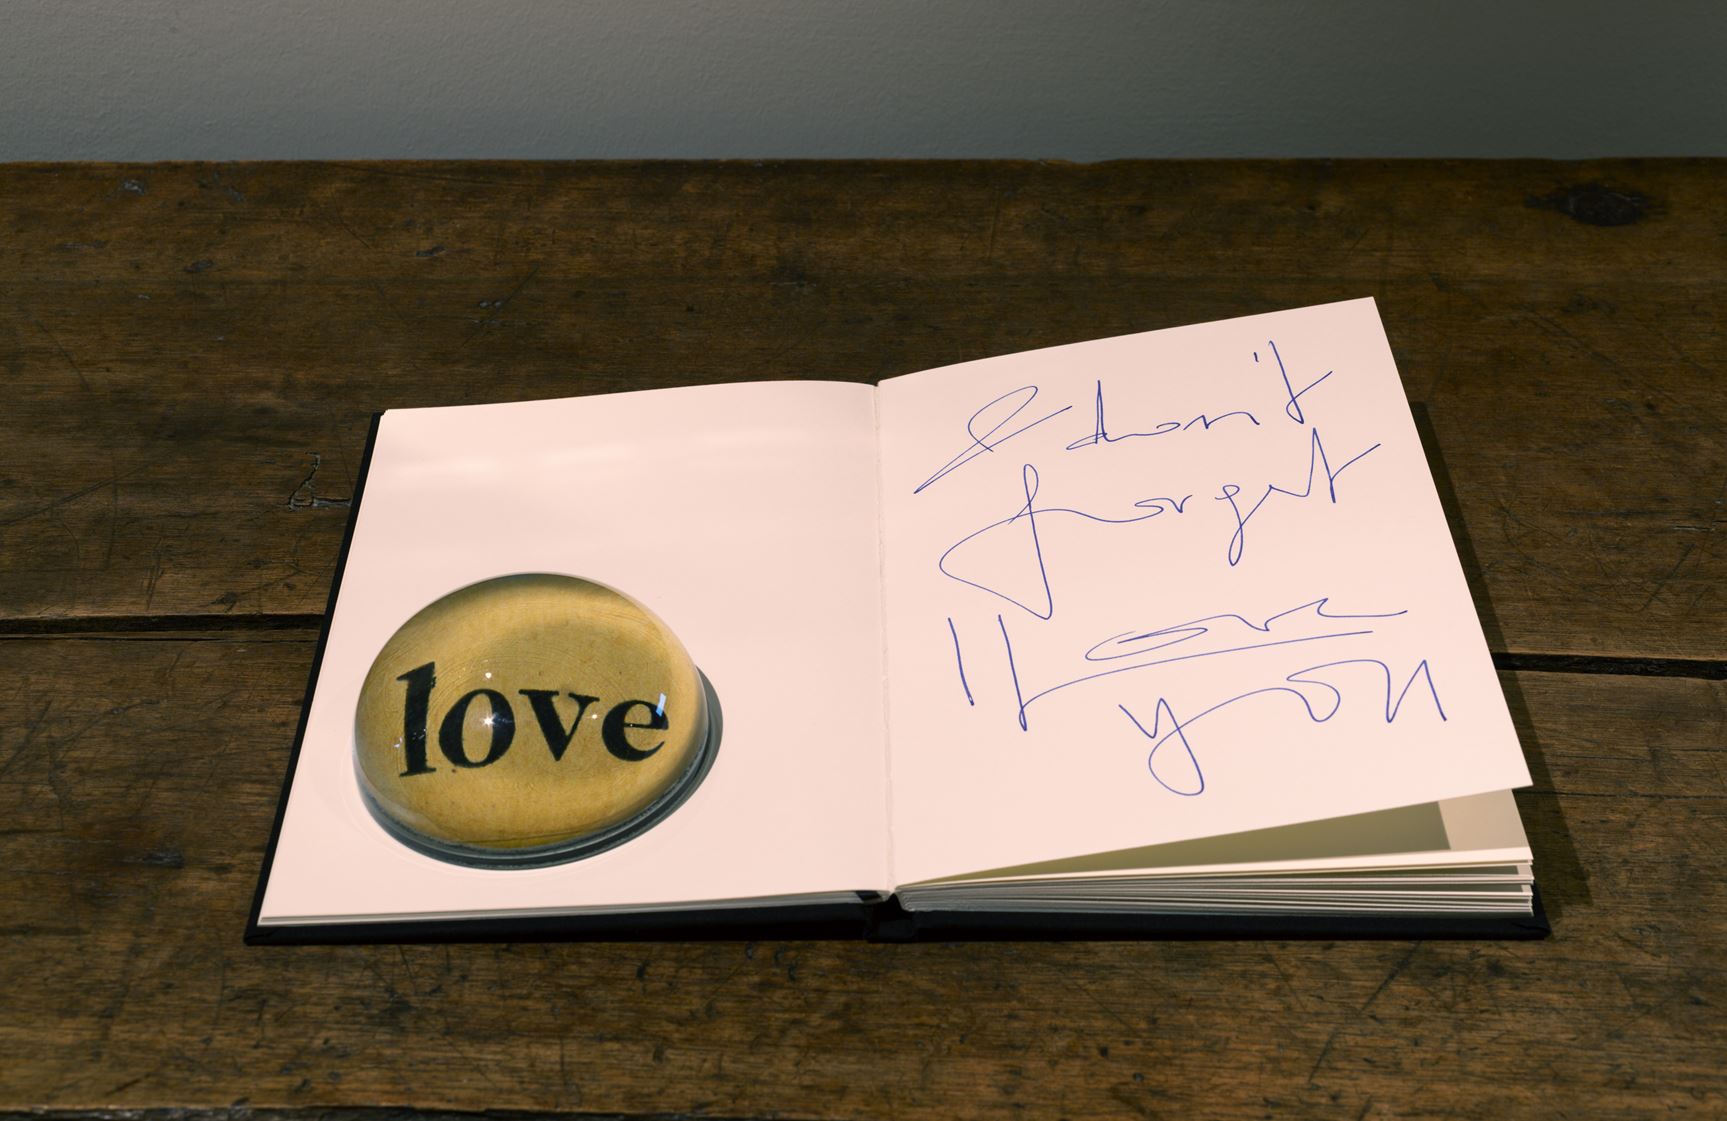 love
& don't
forget
I Love
you